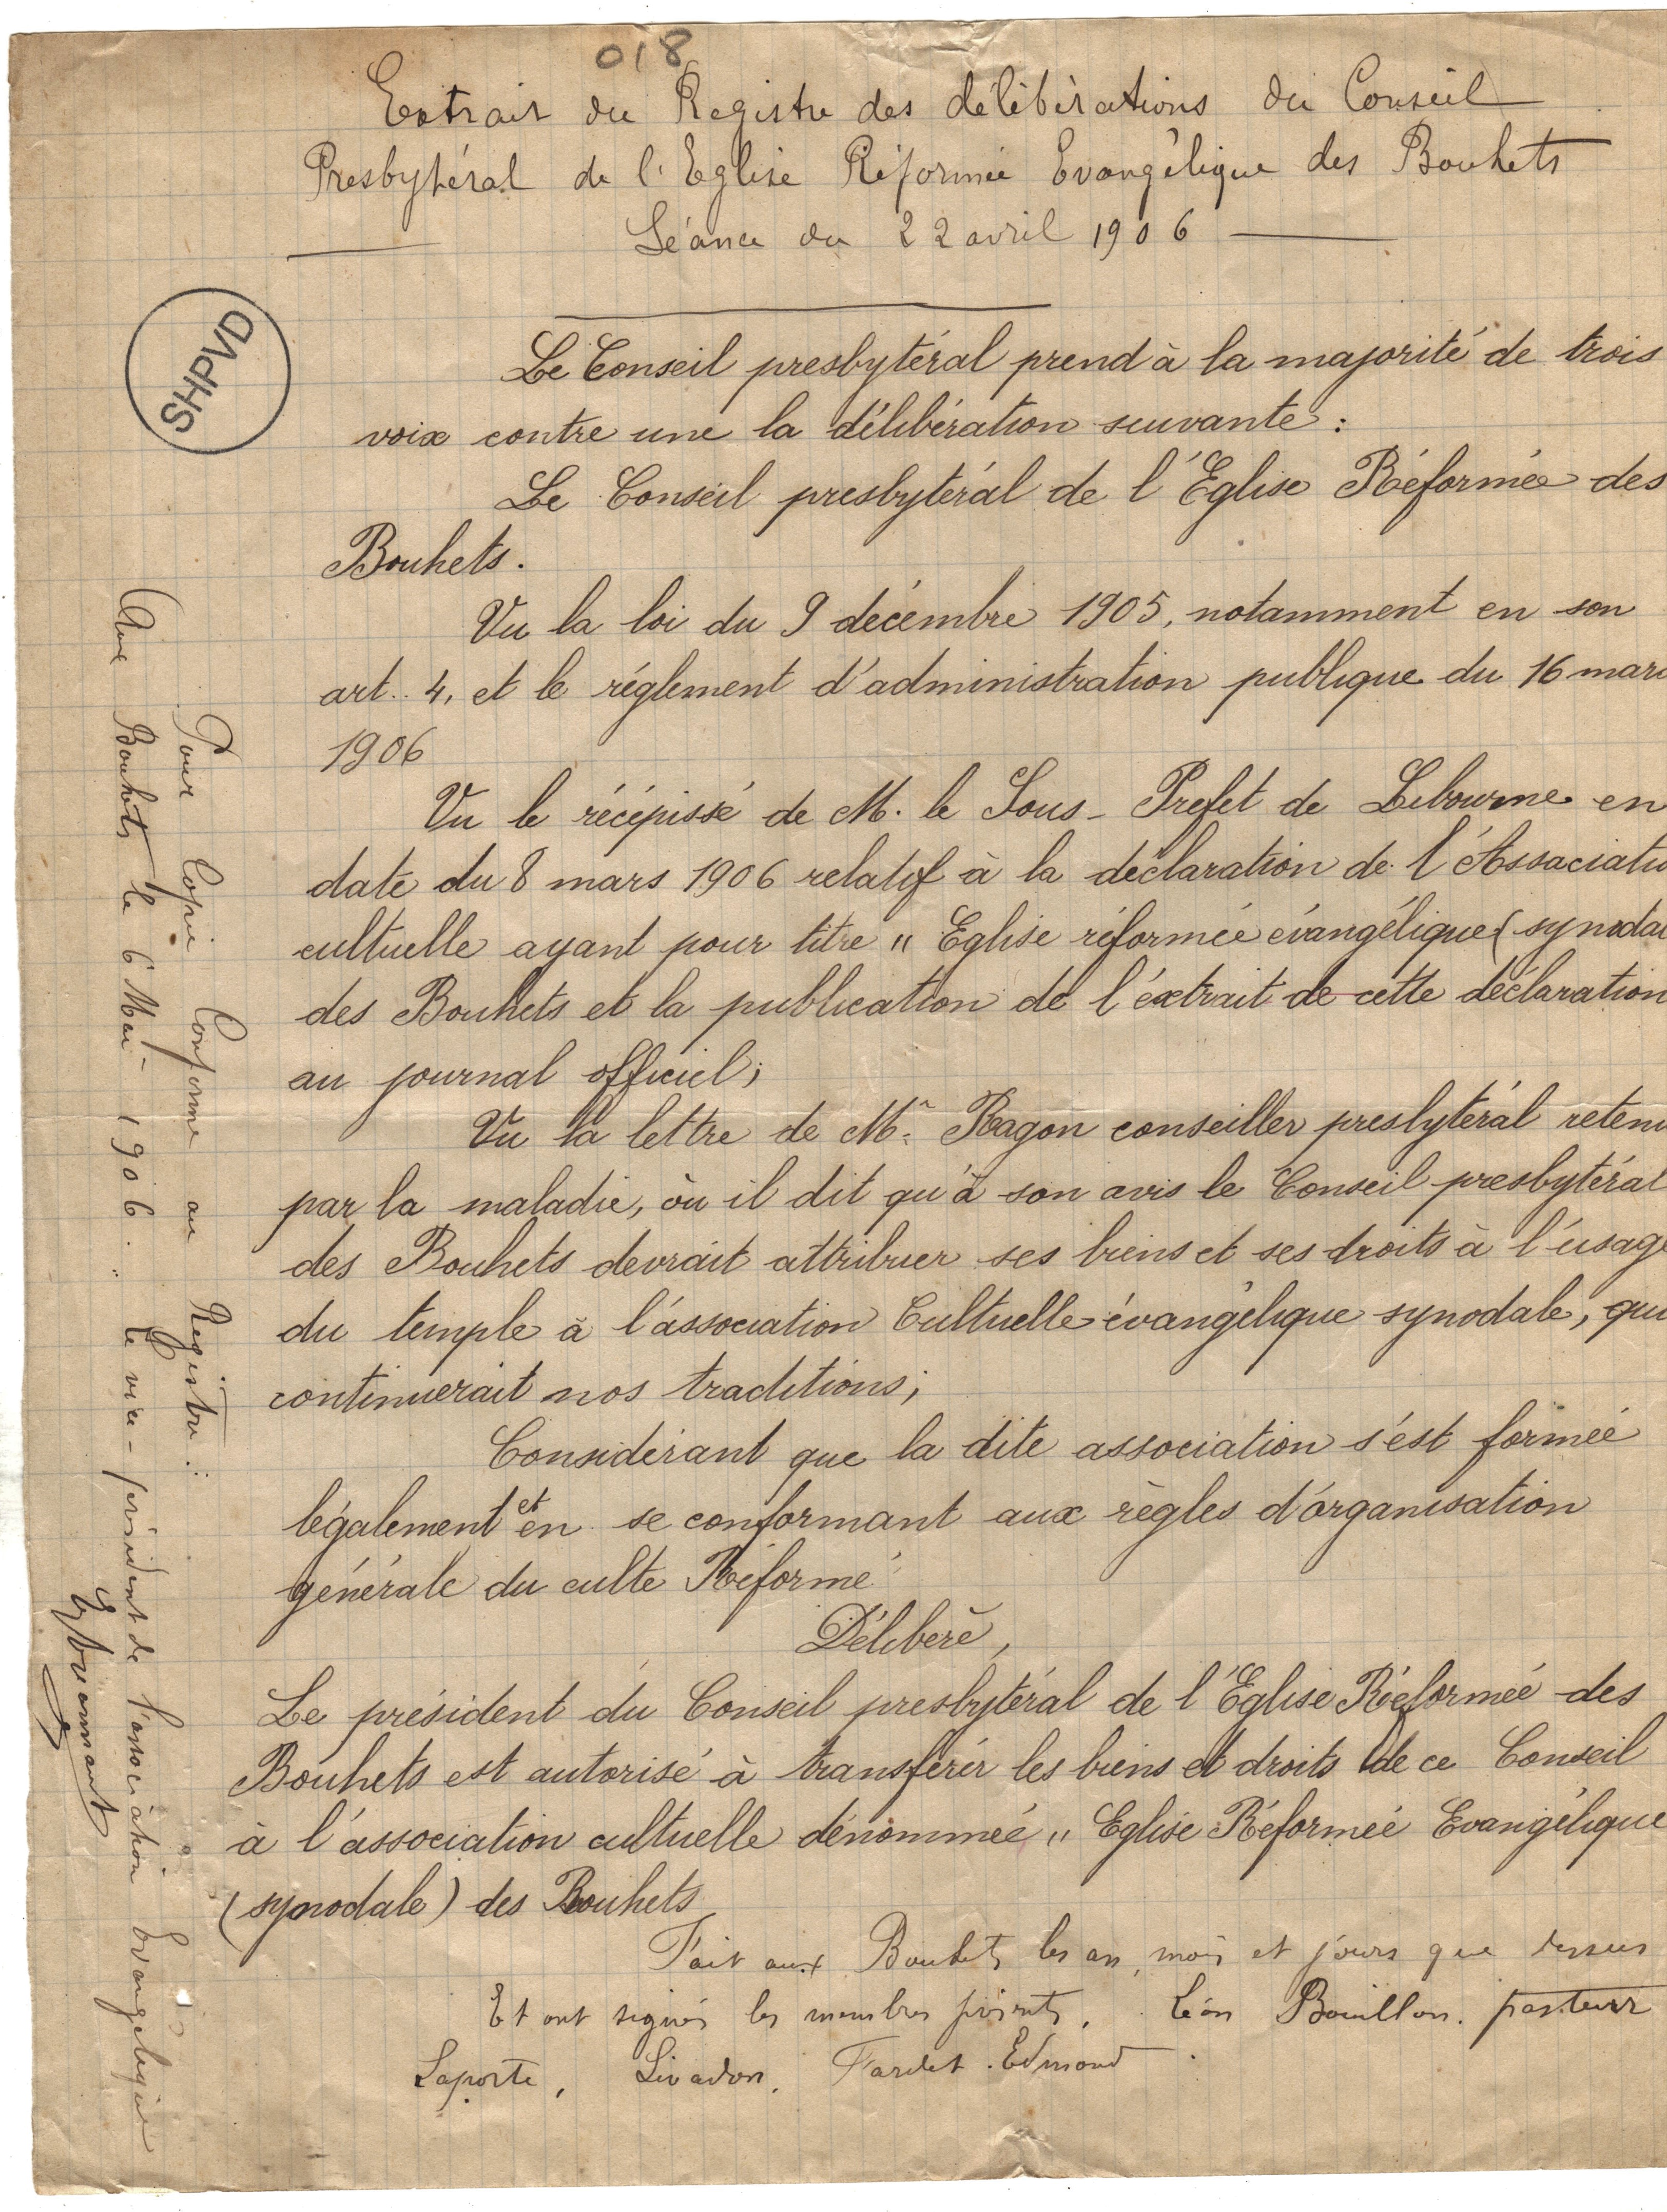 018
Extrait du Registre des délibérations du Conseil
Presbytéral de l'Eglise Réformée Evangélique des Bouhets
Séance du 22 avril 1906
SHPVD
Le Conseil presbytéral prend à la majorité de trois
voix contre une la délibération suivante :
Le Conseil presbytéral de l'Eglise Réformée des
Bouhets.
Vu la loi du 9 décembre 1905, notamment en son
art. 4, et le réglement d'administration publique du 16 mars
1906
Vu le récépissé de M. le Sous-Préfet de Libourne en
date du 8 mars 1906 relatif à la déclaration de l'Associatio
cultuelle ayant pour titre " Eglise réformée évangélique (synodal
des Bouhets et la publication de l'extrait de cette déclaration
au journal officiel;
Vu la lettre de Mr. Ragon conseiller presbytéral retenu
par la maladie, où il dit qu'à son avis le Conseil presbytéral
des Bouhets devrait attribuer ses biens et ses droits à l'usage
du temple à l'association Cultuelle évangélique synodale, qui
continuerait nos traditions;
Considérant que la dite association s'est formée
légalement et en se conformant aux règles d'organisation
générale du culte Réformé
Délibère,
Le président du Conseil presbytéral de l'Eglise Réformée des
Bouhets est autorisé à transférer les biens et droits de ce Conseil
à l'association cultuelle dénommée " Eglise Réformée Evangélique
(synodale) des Bouhets
Fait aux Bouhets les an, mois et jours que dessus
Et ont signés les membres présents, Léon Bouillon, pasteur
Laporte, Livadon, Fardet Edmond
Pour Copie Conforme au Registre :
Aux Bouhets le 6 Mai 1906. le vice-président de l'association Evangélique